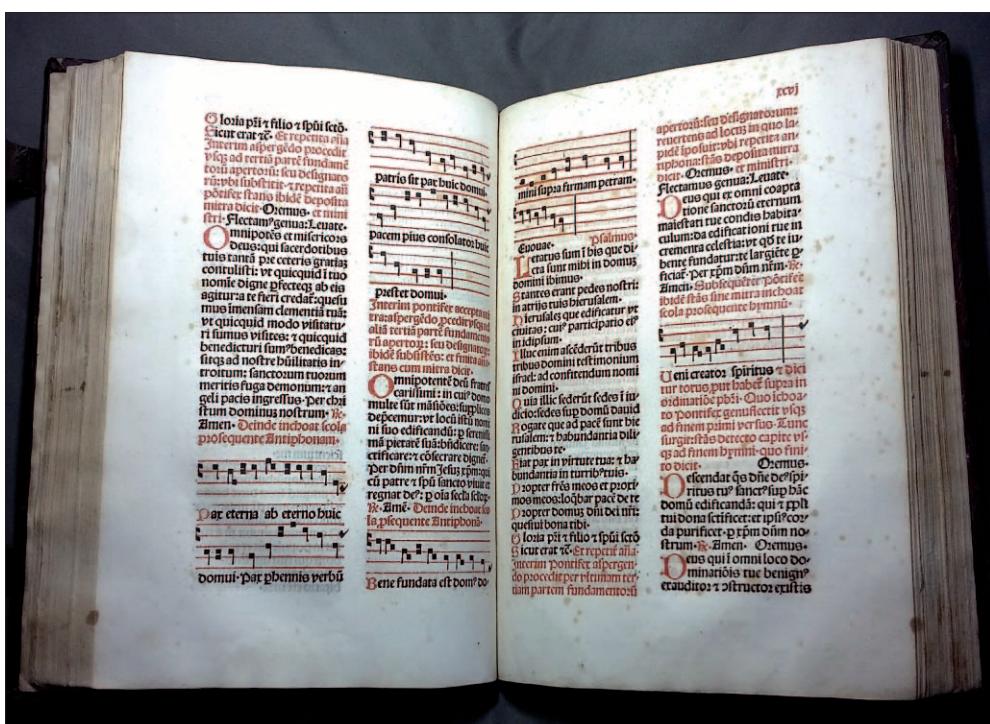 Gloria pr̄i ⁊ filio ⁊ sp̄ui sct̄o.
Sicut erat ⁊c̄. Et repetita an̄a
Interim aspergēdo procedit
vsq; ad tertiā partē fundamē
torū apertorū: seu designato
rū: vbi substitit. ⁊ repetita an̄
pōtifex stans ibidē deposita
mitra dicit. Oremus. et mini
stri. Flectamꝰ genua: Leuate.
Omnipotēs et misericors
deus: qui sacerdotibus
tuis tantā pre ceteris gratiā
contulisti: vt quicquid ī tuo
nomīe digne ꝑfecteq; ab eis
agitur: a te fieri credat̄: quesu
mus īmensam clementiā tuā:
vt quicquid modo visitatu
ri sumus visites: ⁊ quicquid
benedicturi sumꝰ benedicas:
sitq; ad nostre hūilitatis in
troitum: sanctorum tuorum
meritis fuga demonum: ⁊ an
geli pacis ingressus. Per chri
stum dominuȝ nostrum. ℞.
Amen. Deinde inchoat scola
prosequente Antiphonam.
Pax eterna ab eterno huic
domui. Pax ꝑhennis verbū
patris sit pax huic domui.
pacem pius consolator huic
prestet domui.
Interim pontifex accepta mi
tra: aspergēdo ꝓcedit vsq; ad
aliā tertiā partē fundamento
rū apertorū: seu designator̄:
ibidē subsistēs: et finita an̄a
stans cum mitra dicit.
Omnipotentē deū fratres
carissimi: in cuiꝰ domo
multe sūt māsiōes: supplices
dep̄cemur: vt locū istū nomi
ni suo edificandū: ꝑ serenissi
mā pietatē suā: bn̄dicere: san
ctificare: ⁊ cōsecrare dignet̄.
Per dn̄m nr̄m Jesuȝ xp̄m: qui
cū patre ⁊ sp̄u sancto viuit et
regnat deꝰ: ꝑ oīa secl̄a sclo℞.
℞. Amē. Deinde inchoat sco
la ꝓsequente Antiphonā.
Bene fundata est domꝰ do
xcvj
mini supra firmam petram.
Euouae. Psalmus.
Letatus sum ī his que di
cta sunt mihi in domuȝ
domini ibimus.
Stantes erant pedes nostri:
in atrijs tuis hierusalem.
Hierusalēȝ que edificatur vt
ciuitas: cuiꝰ participatio eiꝰ
in idipsum.
Illuc enim ascēderūt tribus
tribus domini testimonium
israel: ad confitendum nomi
ni domini.
Quia illic sederūt sedes ī iu
dicio: sedes suꝑ domū dauid
Rogate que ad pacē sunt hie
rusalem: ⁊ habundantia dili
gentibus te.
Fiat pax in virtute tua: ⁊ ha
bundantia in turribꝰ tuis.
Propter frēs meos et proxi
mos meos: loq̄bar pacē de te
Propter domuȝ dn̄i dei nr̄i:
quesiui bona tibi.
Gloria pr̄i ⁊ filio ⁊ sp̄ui sct̄o
Sicut erat ⁊c̄. Et repetit̄ an̄a
Interim Pontifex aspergen
do procedit per vltimam ter
tiam partem fundamentorū
apertorū: seu designatorum:
reuertens ad locuȝ in quo la
pidē īposuit: vbi repetit̄ an
tiphona: stās deposita mitra
dicit. Oremus. et ministri.
Flectamus genua: Leuate.
Deus qui ex omni coapta
tione sanctorū eternum
maiestati tue condis habita
culum: da edificationi tue in
crementa celestia: vt qd̄ te iu
bente fundatur: te largiēte ꝑ
ficiat̄. Per xp̄m dn̄m nr̄m. ℞.
Amen. Subsequēter Pōtifex
ibidē stās sine mitra inchoat
scola prosequente hymnū.
Ueni creator spiritus ⁊ dici
tur totus: put habet̄ supra in
ordinatiōe pb̄ri. Quo īchoa
to Pontifex genuflectit vsq;
ad finem primi versus. Tunc
surgit: stās detecto capite vs
q; ad finem hymni. quo fini
to dicit. Oremus.
Descendat q̄s dn̄e deꝰ spi
ritus tuꝰ sanctꝰ suꝑ hāc
domū edificandā: qui ⁊ ꝑpl̄i
tui dona sc̄tificet: et ipsiꝰ cor
da purificet. ꝑ xp̄m dn̄m no
strum. ℞. Amen. Oremus.
Deus qui ī omni loco do
minatiōis tue benignꝰ
exauditor ⁊ ↄstructor existis